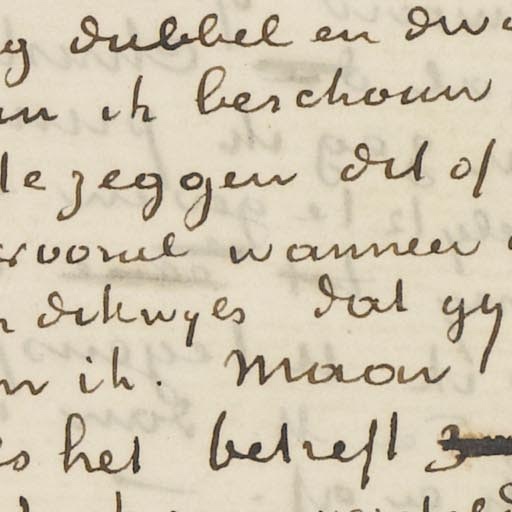 dubbel en dwa
ik beschouw
te zeggen dit of
vooral wanneer
dikwyls dat gy
ik. Maar
het betreft